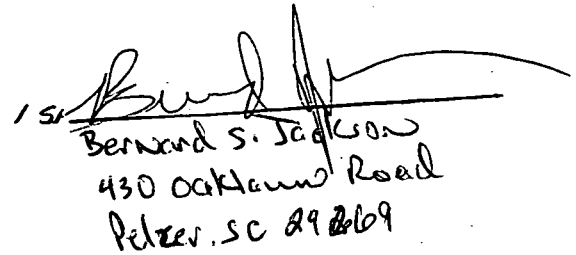 /s/
Bernard S. Jackson
430 Oaklawn Road
Pelzer, SC 29669